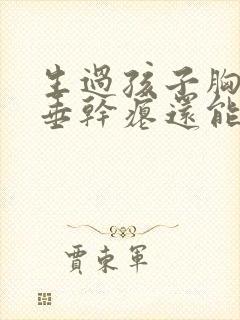 生過孩子胸
垂幹癟還能
賈東軍